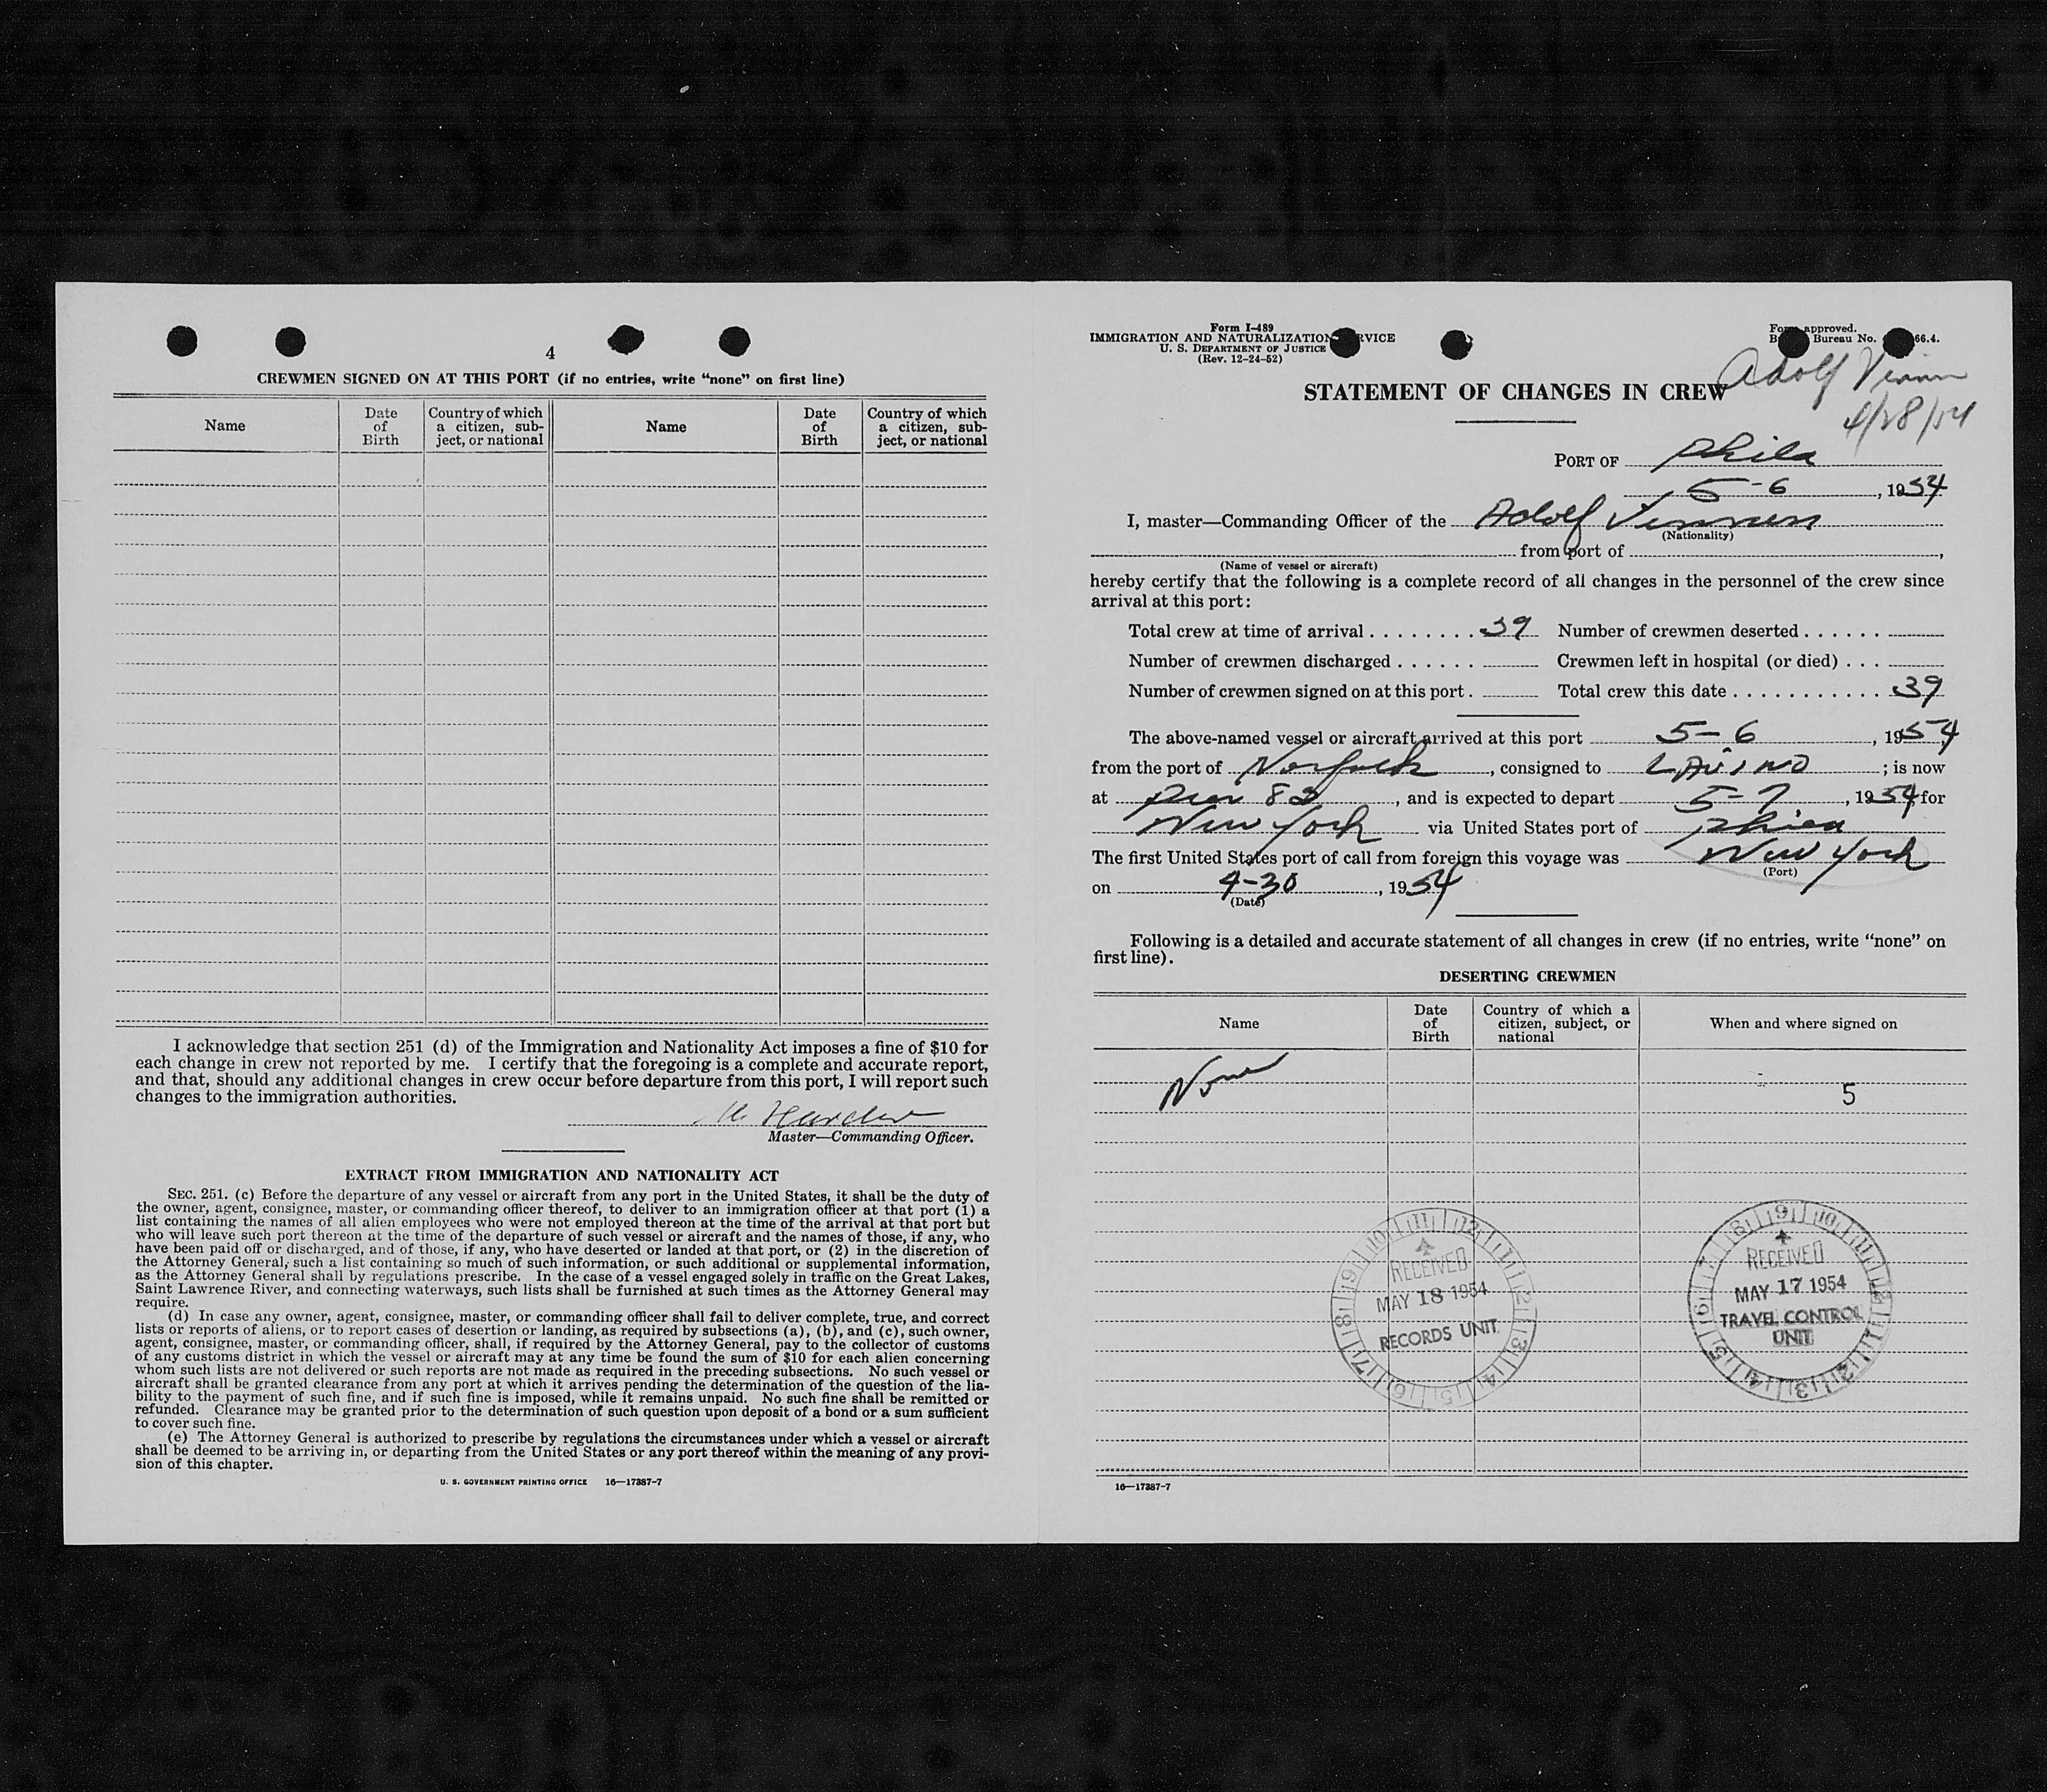 4
CREWMEN SIGNED ON AT THIS PORT (if no entries, write "none" on first line)
Name
Date of Birth
Country of which a citizen, subject, or national
Name
Date of Birth
Country of which a citizen, subject, or national
I acknowledge that section 251 (d) of the Immigration and Nationality Act imposes a fine of $10 for
each change in crew not reported by me. I certify that the foregoing is a complete and accurate report,
and that, should any additional changes in crew occur before departure from this port, I will report such
changes to the immigration authorities.
Master—Commanding Officer.
EXTRACT FROM IMMIGRATION AND NATIONALITY ACT
SEC. 251. (c) Before the departure of any vessel or aircraft from any port in the United States, it shall be the duty of
the owner, agent, consignee, master, or commanding officer thereof, to deliver to an immigration officer at that port (1) a
list containing the names of all alien employees who were not employed thereon at the time of the arrival at that port but
who will leave such port thereon at the time of the departure of such vessel or aircraft and the names of those, if any, who
have been paid off or discharged, and of those, if any, who have deserted or landed at that port, or (2) in the discretion of
the Attorney General, such a list containing so much of such information, or such additional or supplemental information,
as the Attorney General shall by regulations prescribe. In the case of a vessel engaged solely in traffic on the Great Lakes,
Saint Lawrence River, and connecting waterways, such lists shall be furnished at such times as the Attorney General may
require.
(d) In case any owner, agent, consignee, master, or commanding officer shall fail to deliver complete, true, and correct
lists or reports of aliens, or to report cases of desertion or landing, as required by subsections (a), (b), and (c), such owner,
agent, consignee, master, or commanding officer, shall, if required by the Attorney General, pay to the collector of customs
of any customs district in which the vessel or aircraft may at any time be found the sum of $10 for each alien concerning
whom such lists are not delivered or such reports are not made as required in the preceding subsections. No such vessel or
aircraft shall be granted clearance from any port at which it arrives pending the determination of the question of the lia-
bility to the payment of such fine, and if such fine is imposed, while it remains unpaid. No such fine shall be remitted or
refunded. Clearance may be granted prior to the determination of such question upon deposit of a bond or a sum sufficient
to cover such fine.
(e) The Attorney General is authorized to prescribe by regulations the circumstances under which a vessel or aircraft
shall be deemed to be arriving in, or departing from the United States or any port thereof within the meaning of any provi-
sion of this chapter.
U. S. GOVERNMENT PRINTING OFFICE 16—17387-7
Form I-489
IMMIGRATION AND NATURALIZATION
U. S. DEPARTMENT OF JUSTICE
(Rev. 12-24-52)
approved.
Bureau No. 66.4.
Adolf
4/28/54
STATEMENT OF CHANGES IN CREW
PORT OF Phila
5-6, 1954
I, master—Commanding Officer of the Adolf Vinnen
(Nationality)
from port of
(Name of vessel or aircraft)
hereby certify that the following is a complete record of all changes in the personnel of the crew since
arrival at this port:
Total crew at time of arrival 39 Number of crewmen deserted
Number of crewmen discharged Crewmen left in hospital (or died)
Number of crewmen signed on at this port. Total crew this date 39
The above-named vessel or aircraft arrived at this port 5-6, 1954
from the port of Norfolk, consigned to LAVINO; is now
at Pier 82, and is expected to depart 5-7, 1954 for
New York via United States port of Phila
The first United States port of call from foreign this voyage was New York
(Port)
on 4-30, 1954
(Date)
Following is a detailed and accurate statement of all changes in crew (if no entries, write "none" on
first line).
DESERTING CREWMEN
Name
Date of Birth
Country of which a citizen, subject, or national
When and where signed on
None
5
RECEIVED
MAY 18 1954
RECORDS UNIT
RECEIVED
MAY 17 1954
TRAVEL CONTROL
UNIT
16—17387-7